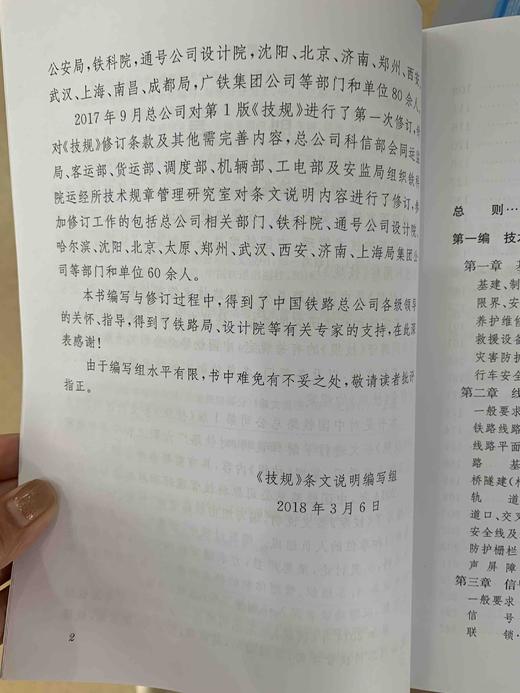 公安局,铁科院,通号公司设计院,沈阳、北京、济南、郑州、西安、
武汉、上海、南昌、成都局,广铁集团公司等部门和单位80余人。
2017年9月总公司对第1版《技规》进行了第一次修订,
对《技规》修订条款及其他需完善内容,总公司科信部会同运
局、客运部、货运部、调度部、机辆部、工电部及安监局组织铁科
院运经所技术规章管理研究室对条文说明内容进行了修订,
加修订工作的包括总公司相关部门、铁科院、通号公司设计院,
哈尔滨、沈阳、北京、太原、郑州、武汉、西安、济南、上海局集团公
司等部门和单位60余人。
本书编写与修订过程中,得到了中国铁路总公司各级领导
的关怀、指导,得到了铁路局、设计院等有关专家的支持,在此深
表感谢!
由于编写组水平有限,书中难免有不妥之处,敬请读者批评
指正。
《技规》条文说明编写组
2018年3月6日
2
总 则
第一编 技术
第一章 基
基建、制
限界、安
养护维修
救援设备
灾害防护
行车安全
第二章 线
一般要求
铁路线路
线路平面
路 基
桥隧建(
轨 道
道口、交叉
安全线及
防护栅栏
声 屏 障
第三章 信号
一般要求
信 号
联 锁